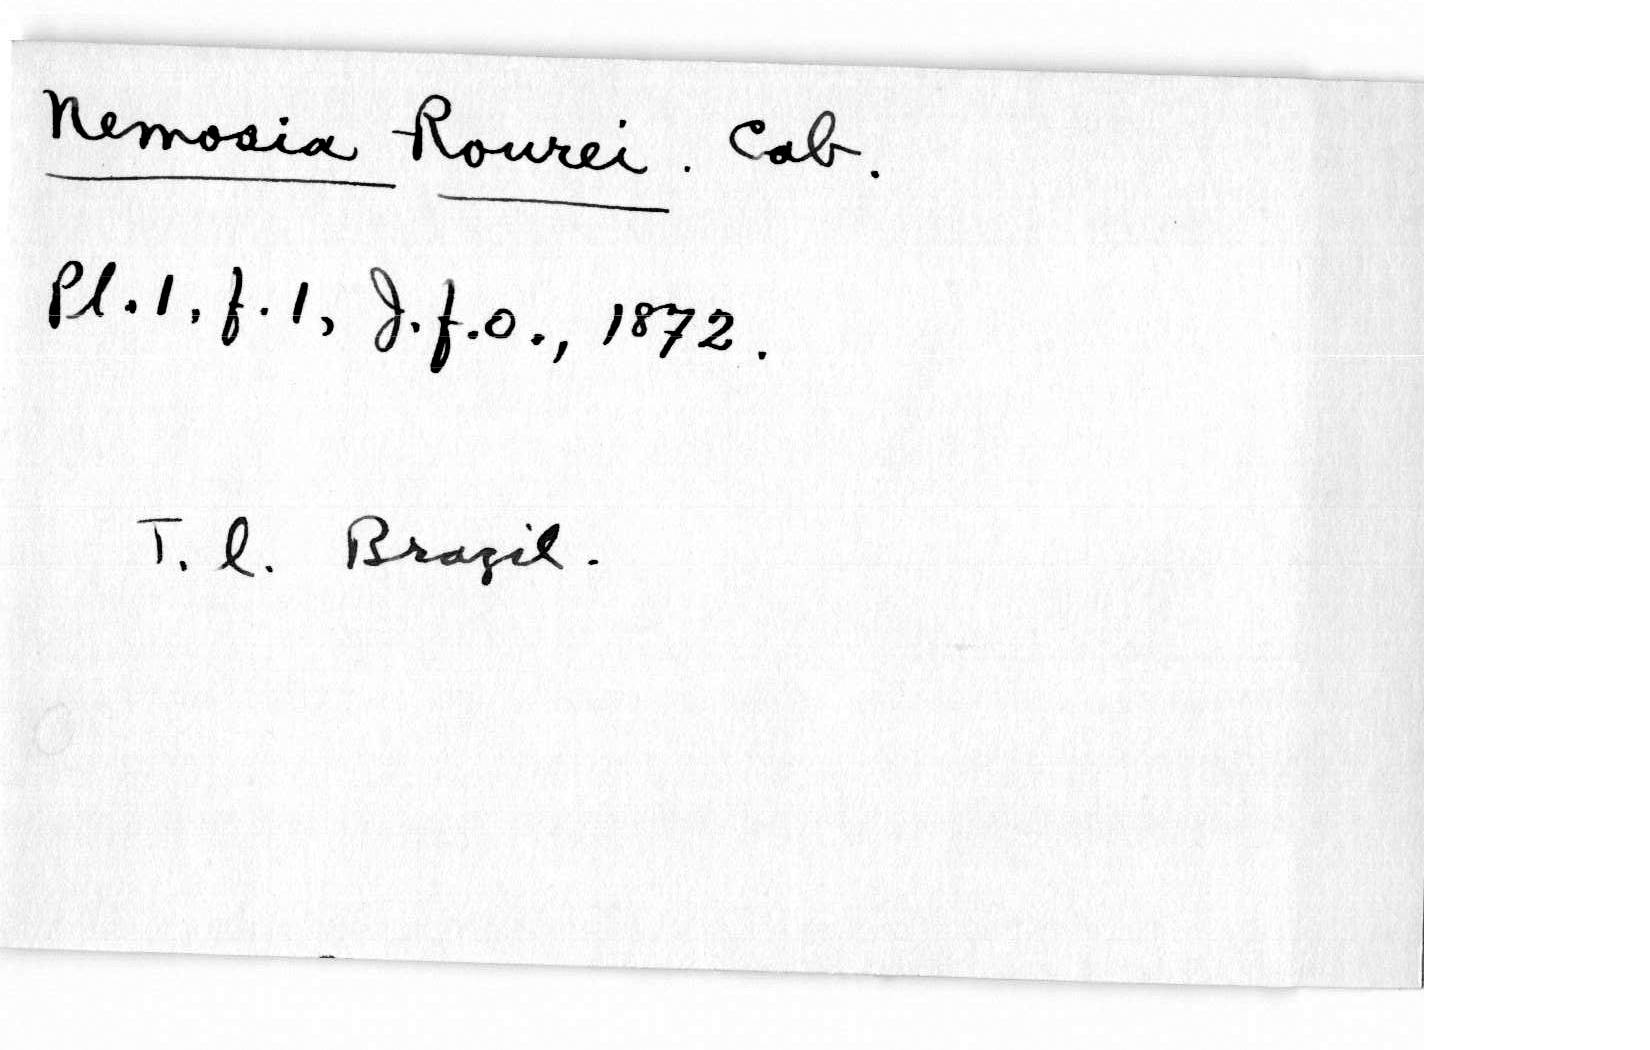 Nemosia Rourei. Cab.
Pl. 1, f. 1, J. f. O., 1872.
T. l. Brazil.